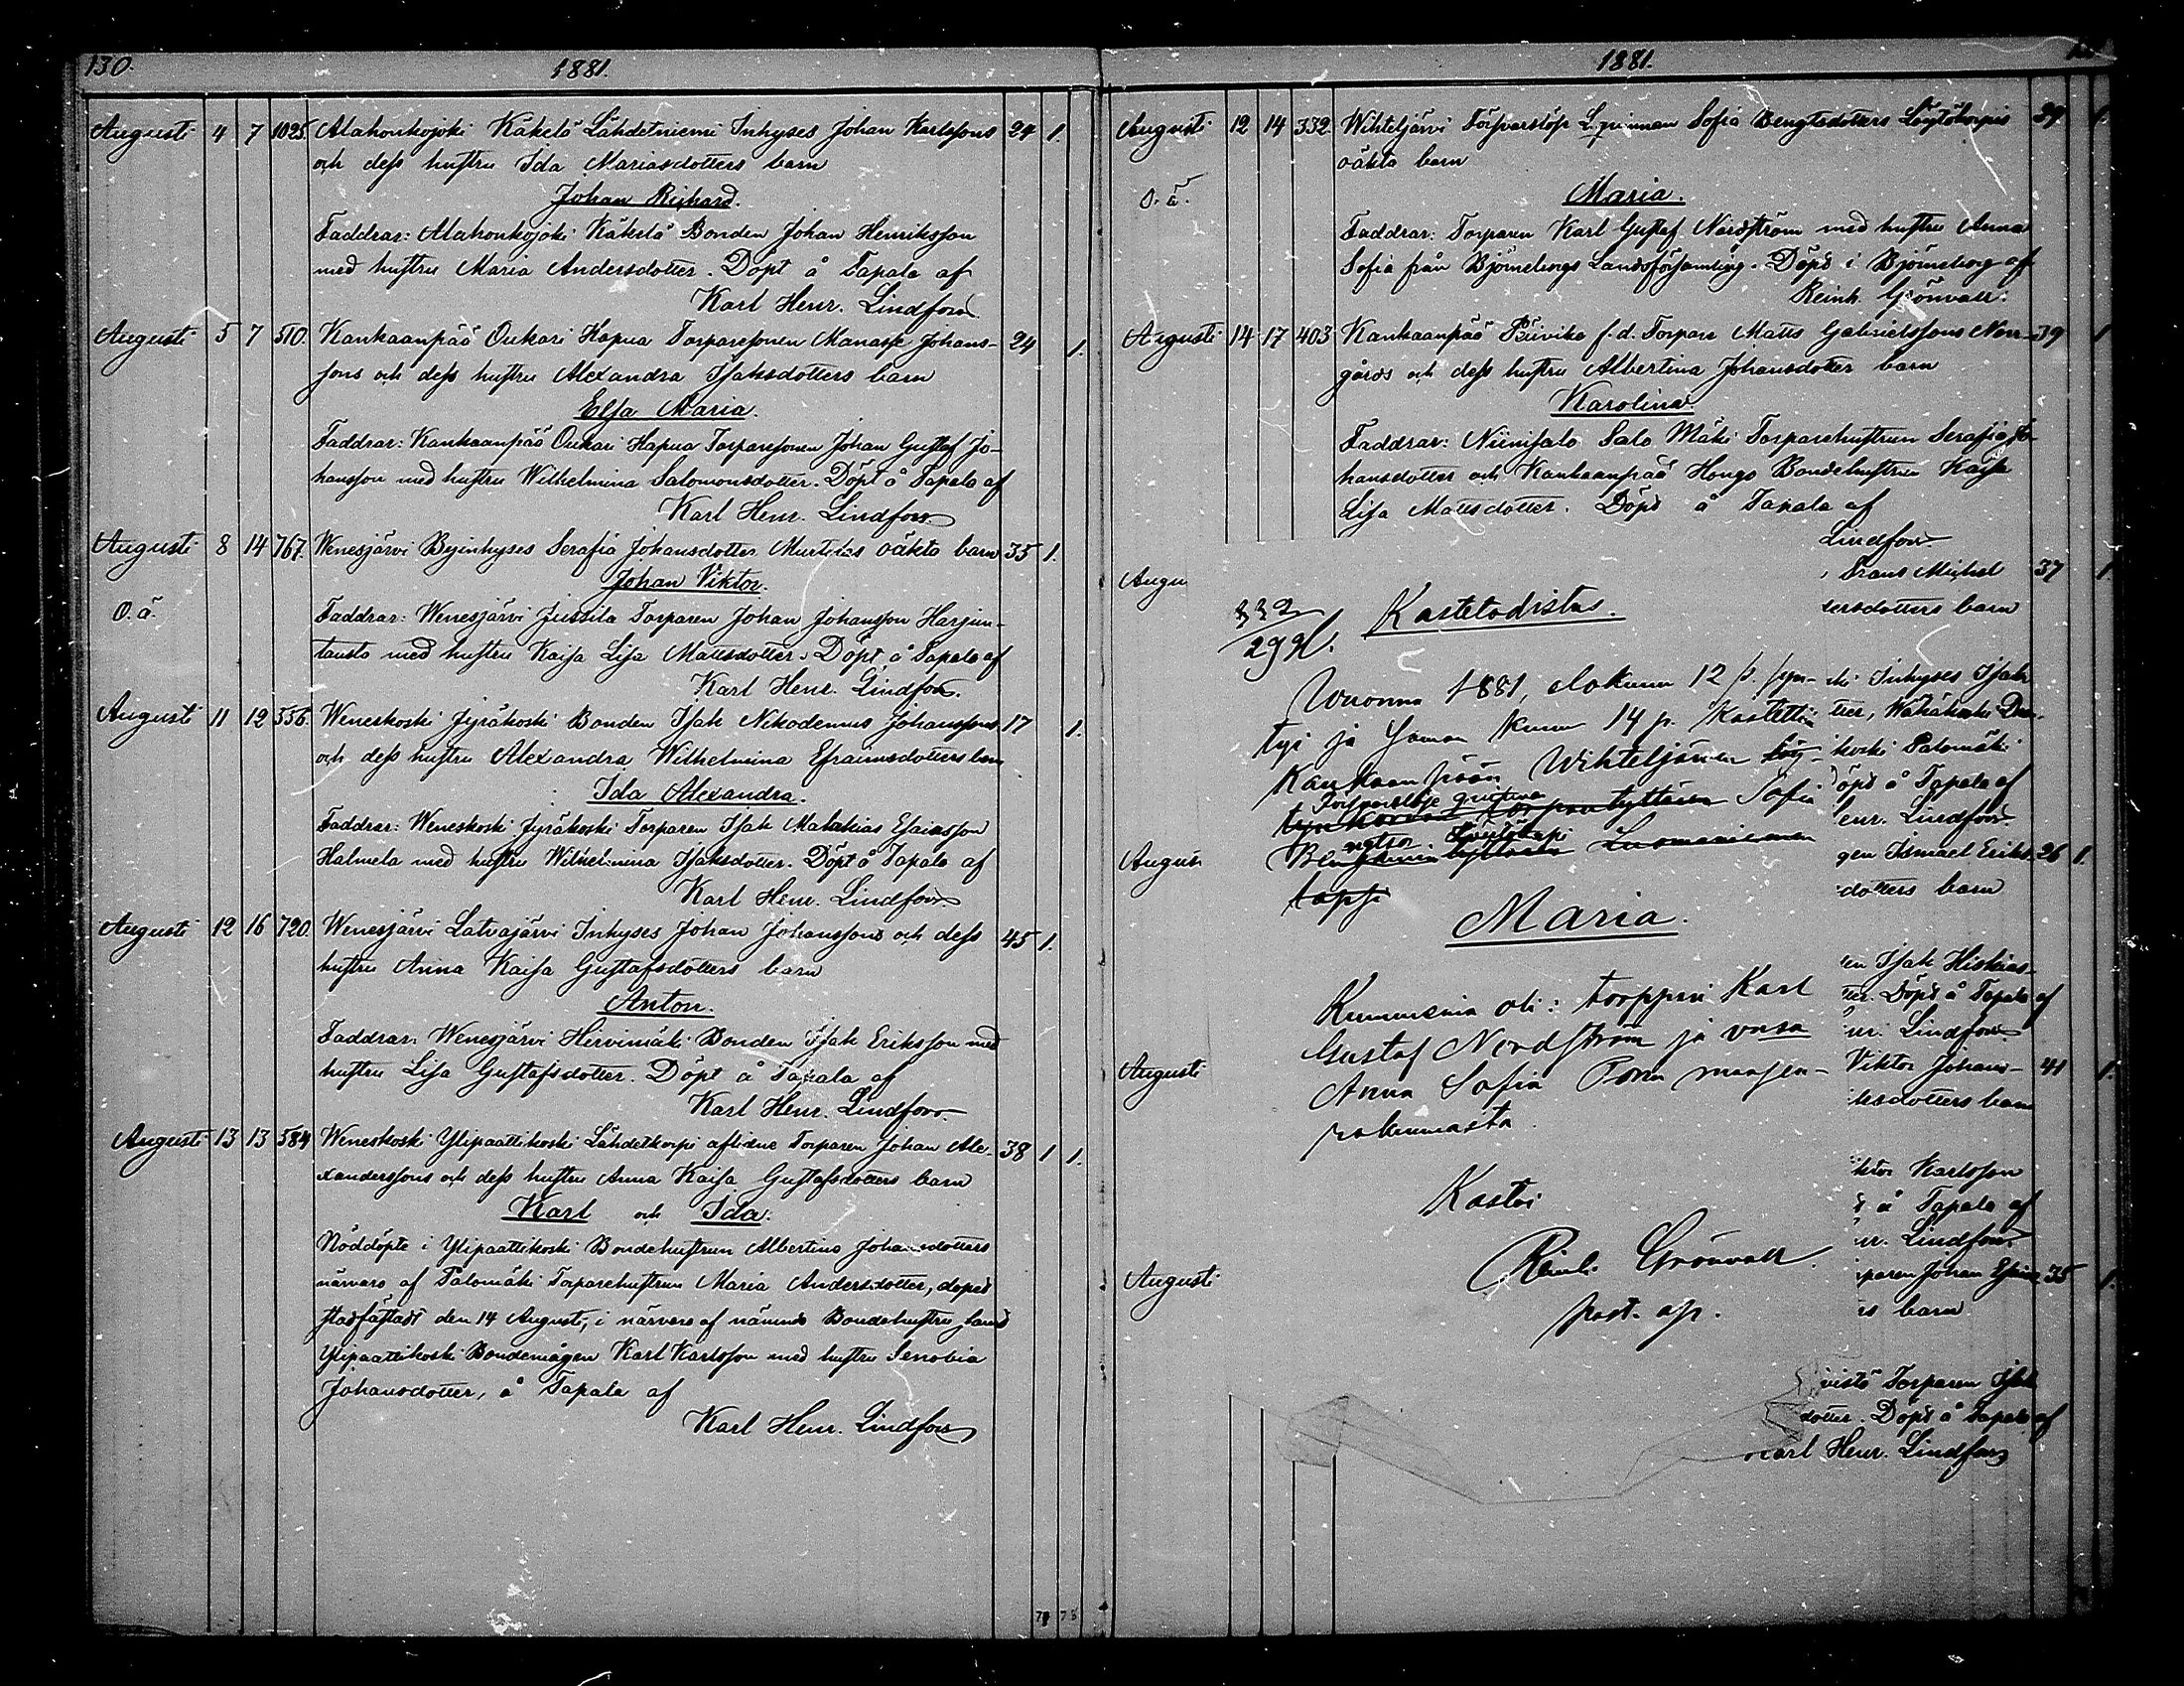 130.
1881.
Augusti 4 7 1025. Alahonkojoki Käkelä Lähdetniemi Inhyses Johan Karlssons 24 1.
och dess hustru Ida Mariasdotters barn
Johan Richard.
Faddrar: Alahonkojoki Käkelä Bonden Johan Henriksson
med hustru Maria Andersdotter. Döpt å Tapala af
Karl Henr. Lindfors.
Augusti 5 7 510. Kankaanpää Oukari Hapua Torparesonen Manasse Johans- 24 1.
sons och dess hustru Alexandra Isaksdotters barn
Elsa Maria.
Faddrar: Kankaanpää Oukari Hapua Torparesonen Johan Gustaf Jo-
hansson med hustru Wilhelmina Salomonsdotter. Döpt å Tapala af
Karl Henr. Lindfors.
Augusti 8 14 767. Wenesjärvi Byinhyses Serafia Johansdotter oäkta barn 35 1.
Johan Viktor.
O. ä. Faddrar: Wenesjärvi Jussila Torparen Johan Johansson Harjun-
tausta med hustru Kaisa Lisa Mattsdotter. Döpt å Tapala af
Karl Henr. Lindfors.
Augusti 11 12 556. Weneskoski Jyräkoski Bonden Isak Nikodemus Johanssons 17 1.
och dess hustru Alexandra Wilhelmina Efraimsdotters barn
Ida Alexandra.
Faddrar: Weneskoski Jyräkoski Torparen Isak Malakias Esaiasson
Halmela med hustru Wilhelmina Isaksdotter. Döpt å Tapala af
Karl Henr. Lindfors.
Augusti 12 16 720. Wenesjärvi Latvajärvi Inhyses Johan Johanssons och dess 45 1.
hustru Anna Kaisa Gustafsdotters barn
Anton.
Faddrar: Wenesjärvi Hirvimäki Bonden Isak Eriksson med
hustru Lisa Gustafsdotter. Döpt å Tapala af
Karl Henr. Lindfors.
Augusti 13 13 584 Weneskoski Ylipaattikoski Lähdetkorpi aflidne Torparen Johan Ale- 38 1 1.
xanderssons och dess hustru Anna Kaisa Gustafsdotters barn
Karl och Ida.
Nöddöpte i Ylipaattikoski Bondehustrun Albertina Johansdotters
närvaro af Palomäki Torparehustrun Maria Andersdotter, dopet
stadfästadt den 14 Augusti, i närvaro af nämnde Bondehustru samt
Ylipaattikoski Bondemågen Karl Karlsson med hustru Senobia
Johansdotter, å Tapala af
Karl Henr. Lindfors
1881.
Augusti 12 14 332. Wihteljärvi Försvarslösa qvinnan Sofia Bengtsdotters Löytökorpis 29 1.
oäkta barn
O. ä. Maria.
Faddrar: Torparen Karl Gustaf Nordström med hustru Anna
Sofia från Björneborgs Landsförsamling. Döpt i Björneborg af
Reinh. Grönvall.
Augusti 14 17 403 Kankaanpää Päiviko f. d. Torpare Matts Gabrielssons Norr- 39 1
gårds och dess hustru Albertina Johansdotter barn
Karolina
Faddrar: Niinisalo Salo Mäki Torparehustrun Serafia Jo-
hansdotter och Kankaanpää Hongo Bondehustrun Kaisa
Lisa Mattsdotter. Döpt å Tapala af
Lindfors.
Augu Frans Michel 37 1
ersdotters barn
332
299
Kastetodistus.
Wuonna 1881, elokuun 12 p. syn-
tyi ja saman kuun 14 p. kastettiin
Kankaanpään Wihteljärven
Försvarslöse qvinna
Sofia
Maria.
Kummeina oli: torppari Karl
Gustaf Nordström ja vaimo
Anna Sofia Porin maaseu-
rakunnasta.
Kastoi
Reinh. Grönvall.
past. apr.
Inhyses Isak
koski Palomäki
Döpt å Tapala af
enr. Lindfors.
Augus gen Ismael Eriks 26 1.
dotters barn
en Isak Hiskias-
ter. Döpt å Tapala af
nr. Lindfors.
Augusti Viktor Johans- 41 1.
ksdotters barn
iktor Karlsson
t å Tapala af
nr. Lindfors.
Augusti rparen Johan 35 1.
rs barn
Torparen Isak
dotter. Döpt å Tapala af
Karl Henr. Lindfors